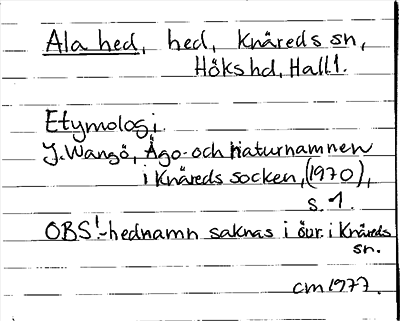 Ala hed, hed, Knäreds sn,
Höks hd, Hall.
Etymologi
J. Wangö, Ägo- och naturnamnen
i Knäreds socken, (1970),
s. 1.
OBS! -hednamn saknas i övr. i Knäreds
sn.
cm 1977.